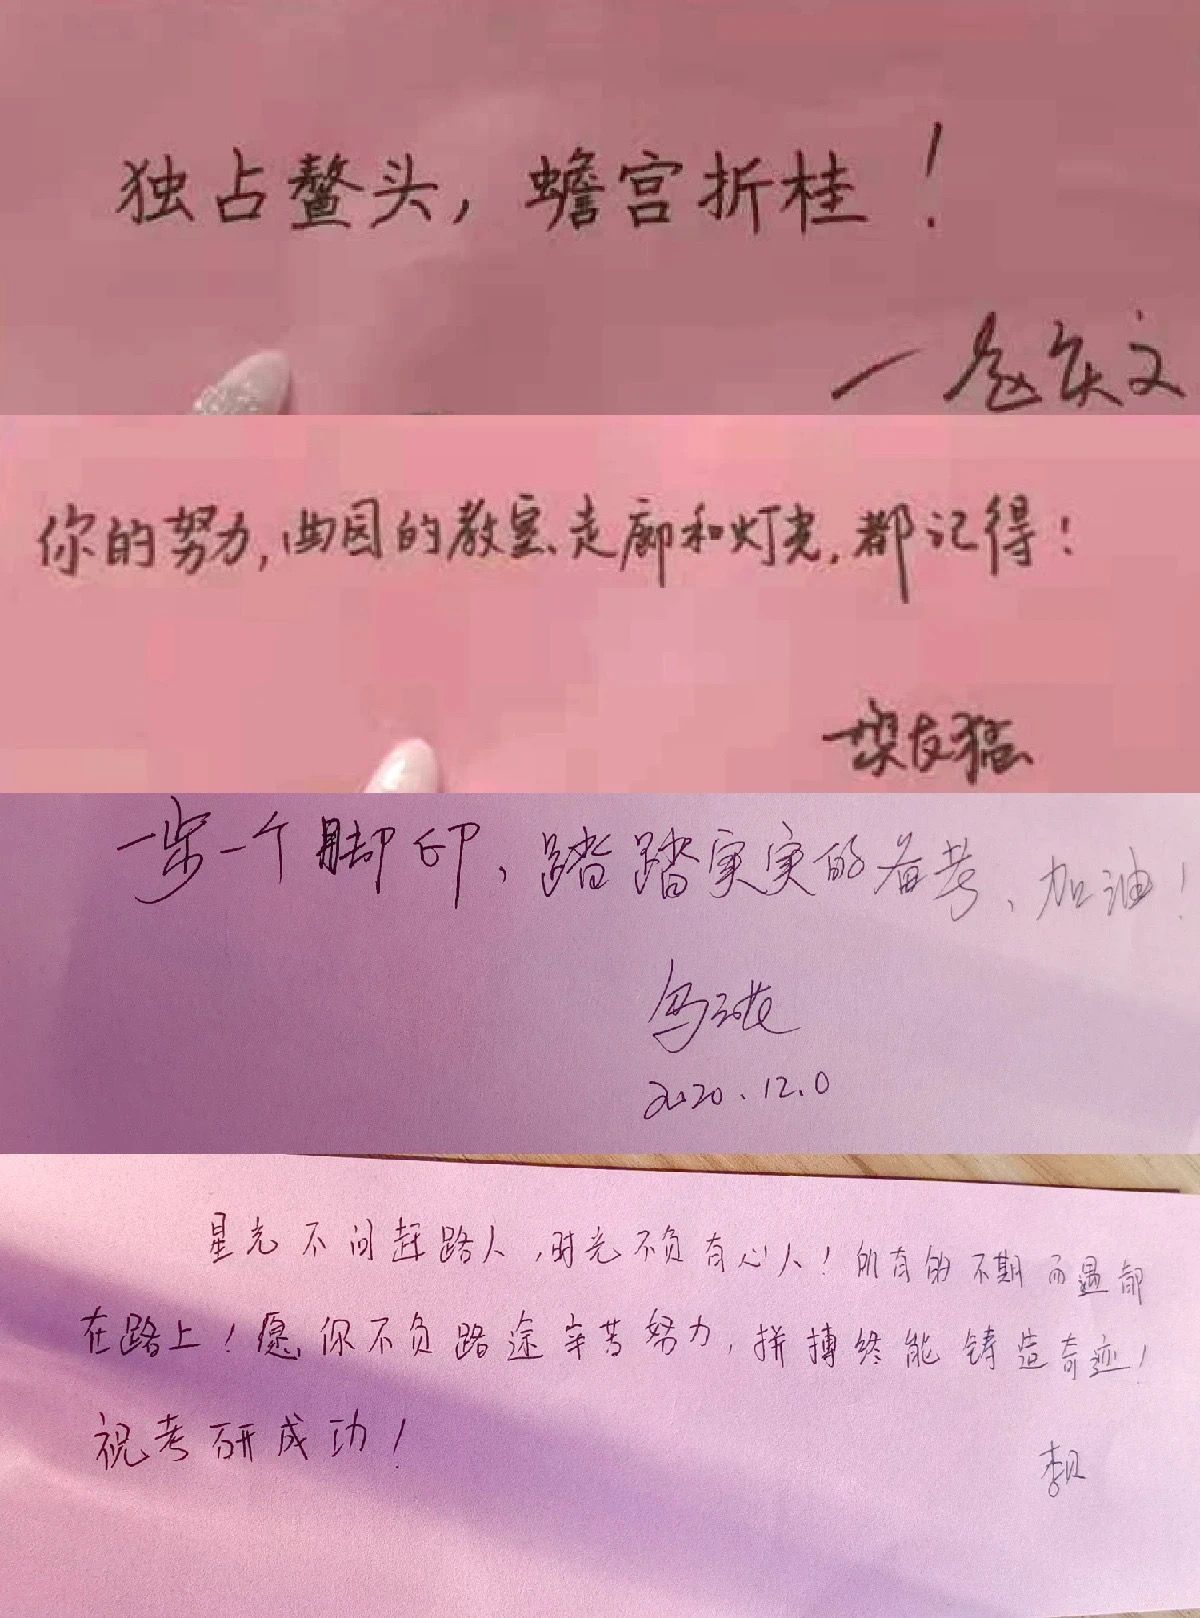 独占鳌头，蟾宫折桂！
你的努力，曲园的教室、走廊和灯光，都记得！
一步一个脚印，踏踏实实的备考、加油！
2020.12.0
星光不问赶路人，时光不负有心人！所有的不期而遇都
在路上！愿你不负路途辛苦努力，拼搏终能铸造奇迹！
祝考研成功！